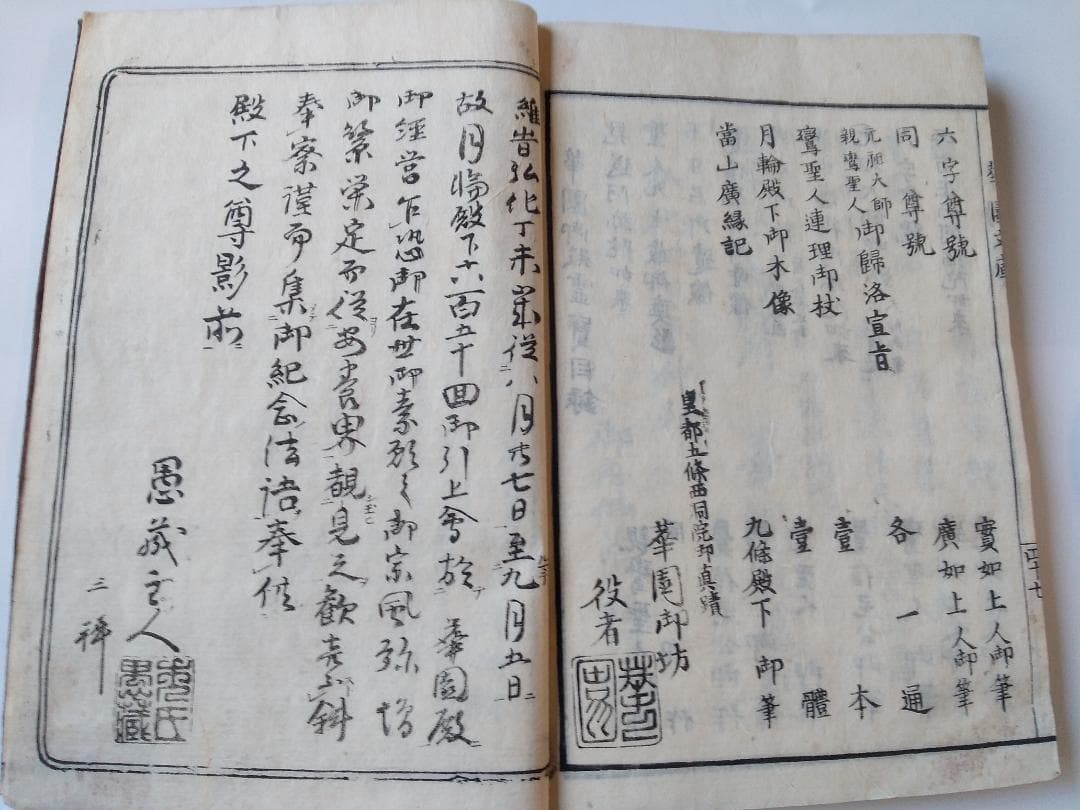 六字尊號　實如上人御筆
同　尊號　廣如上人御筆
元祖大師
親鸞聖人御歸洛宣旨　各一通
鸞聖人連理御杖　壹本
月輪殿下御木像　壹體
當山廣縁記　九條殿下御筆
皇都五條西洞院御眞蹟
華園御坊
役者
四十七
維昔弘化丁未歳從八月廿七日至九月五日
故月輪殿下六百五十回御引上會於華園殿
御經営乍恐御在世御素願之御宗風弥増
御繁栄定而從安養界覩見之歓喜不斜
奉察謹而集御紀念法語奉供
殿下之尊影前
愚蔵主人
三拜